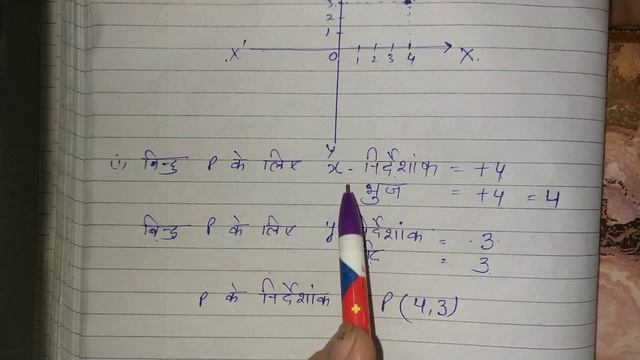 3
2
1
X' 0 1 2 3 4 X
y
(i) बिन्दु P के लिए x- निर्देशांक = +4
भुज = +4 = 4
बिन्दु P के लिए y र्देशांक = 3
= 3
P के निर्देशांक P(4,3)